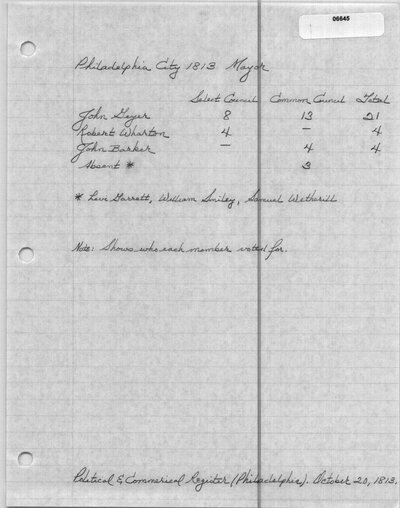 06645
Philadelphia City 1813 Mayor
Select Council Common Council Total
John Geyer 8 13 21
Robert Wharton 4 — 4
John Barker — 4 4
Absent * 3
* Levi Garrett, William Smiley, Samuel Wetherill
Note: Shows who each member voted for.
Political & Commerical Register (Philadelphia). October 20, 1813.